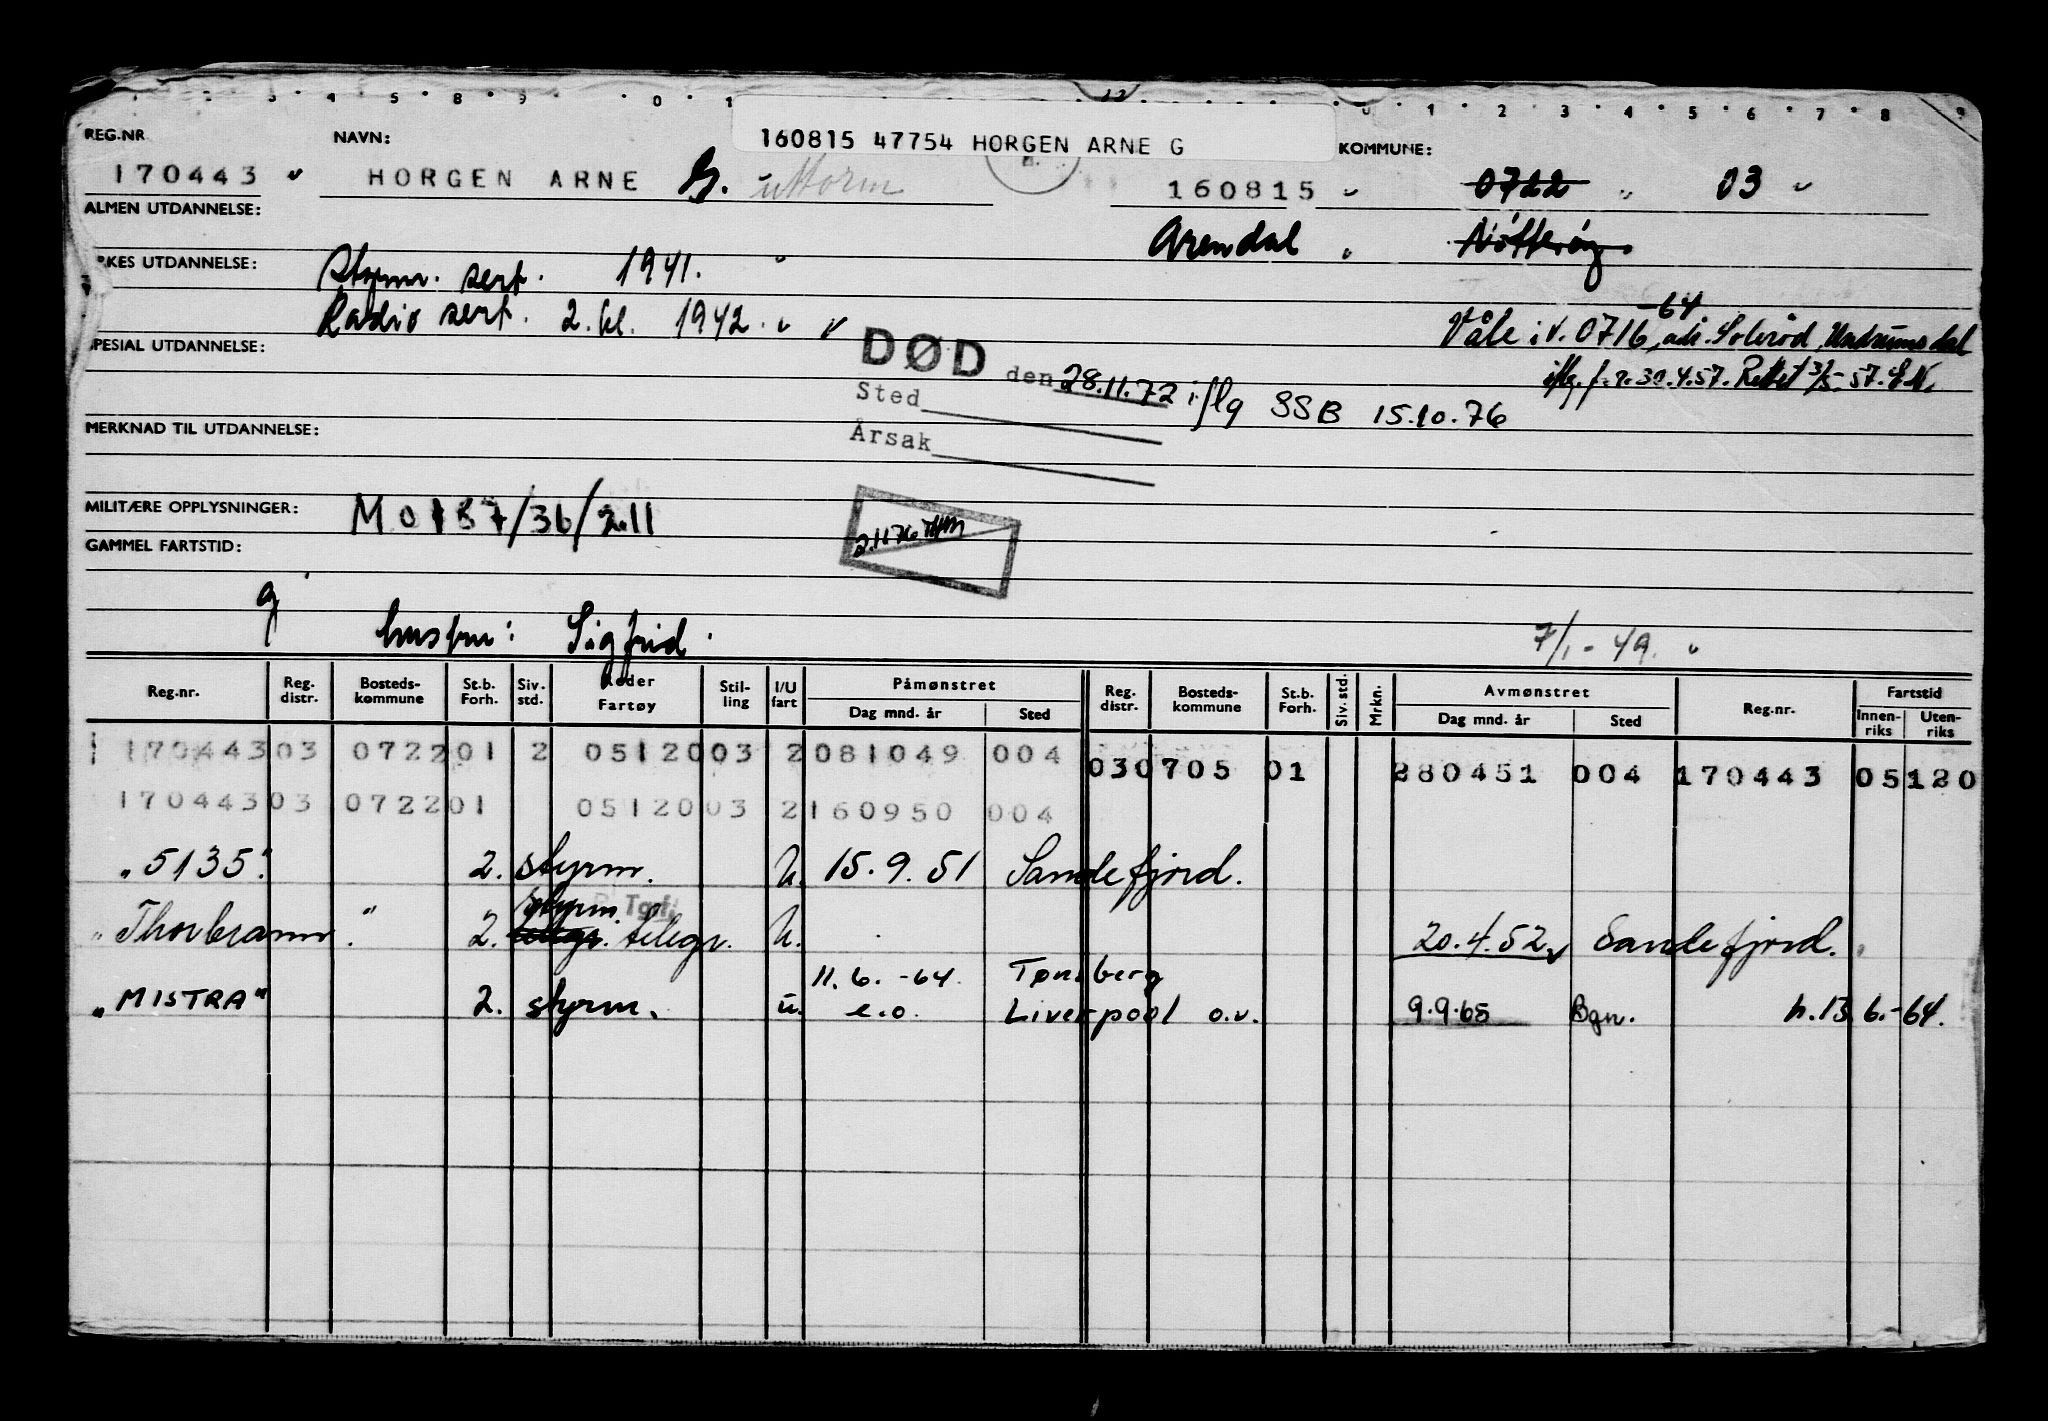 REG.NR NAVN: 160815 47754 HORGEN ARNE G KOMMUNE:
170443 HORGEN ARNE G. uttorm 160815 0722 03
ALMEN UTDANNELSE: Arendal Nötteröy
YRKES UTDANNELSE: Styrm. sert. 1941.
Radio sert. 2. kl. 1942. -64
Våle i V. 0716, adr. Solerød, Undrumsdal
SPESIAL UTDANNELSE: DØD den 28.11.72 iflg SSB 15.10.76
iflg. f. 30.4.57. Rettet 3/5-57.
Sted
MERKNAD TIL UTDANNELSE: Årsak
MILITÆRE OPPLYSNINGER: M 0137/36/2.11
2.11.76
GAMMEL FARTSTID:
g hustru: Sigfrid. 7/1-49.
Reg.nr. Reg. distr. Bosteds-kommune St.b. Forh. Siv. std. Reder Fartøy Stil-ling I/U fart Påmønstret Dag mnd. år Sted Reg. distr. Bosteds-kommune St.b. Forh. Siv. std. Mrkn. Avmønstret Dag mnd. år Sted Reg.nr. Fartstid Innen-riks Uten-riks
170443 03 0722 01 2 05120 03 2 081049 004 03 0705 01 280451 004 170443 05120
170443 03 0722 01 05120 03 2 160950 004
"5135" 2. styrm. U. 15.9.51 Sandefjord.
styrm. Tgrf.
"Thorbrann" 2. telegr. telegr. U. 20.4.52 Sandefjord.
11.6.-64. Tønsberg
"MISTRA" 2. styrm. u. e.o. Liverpool o.v. 9.9.65 Bgn. h.13.6.-64.